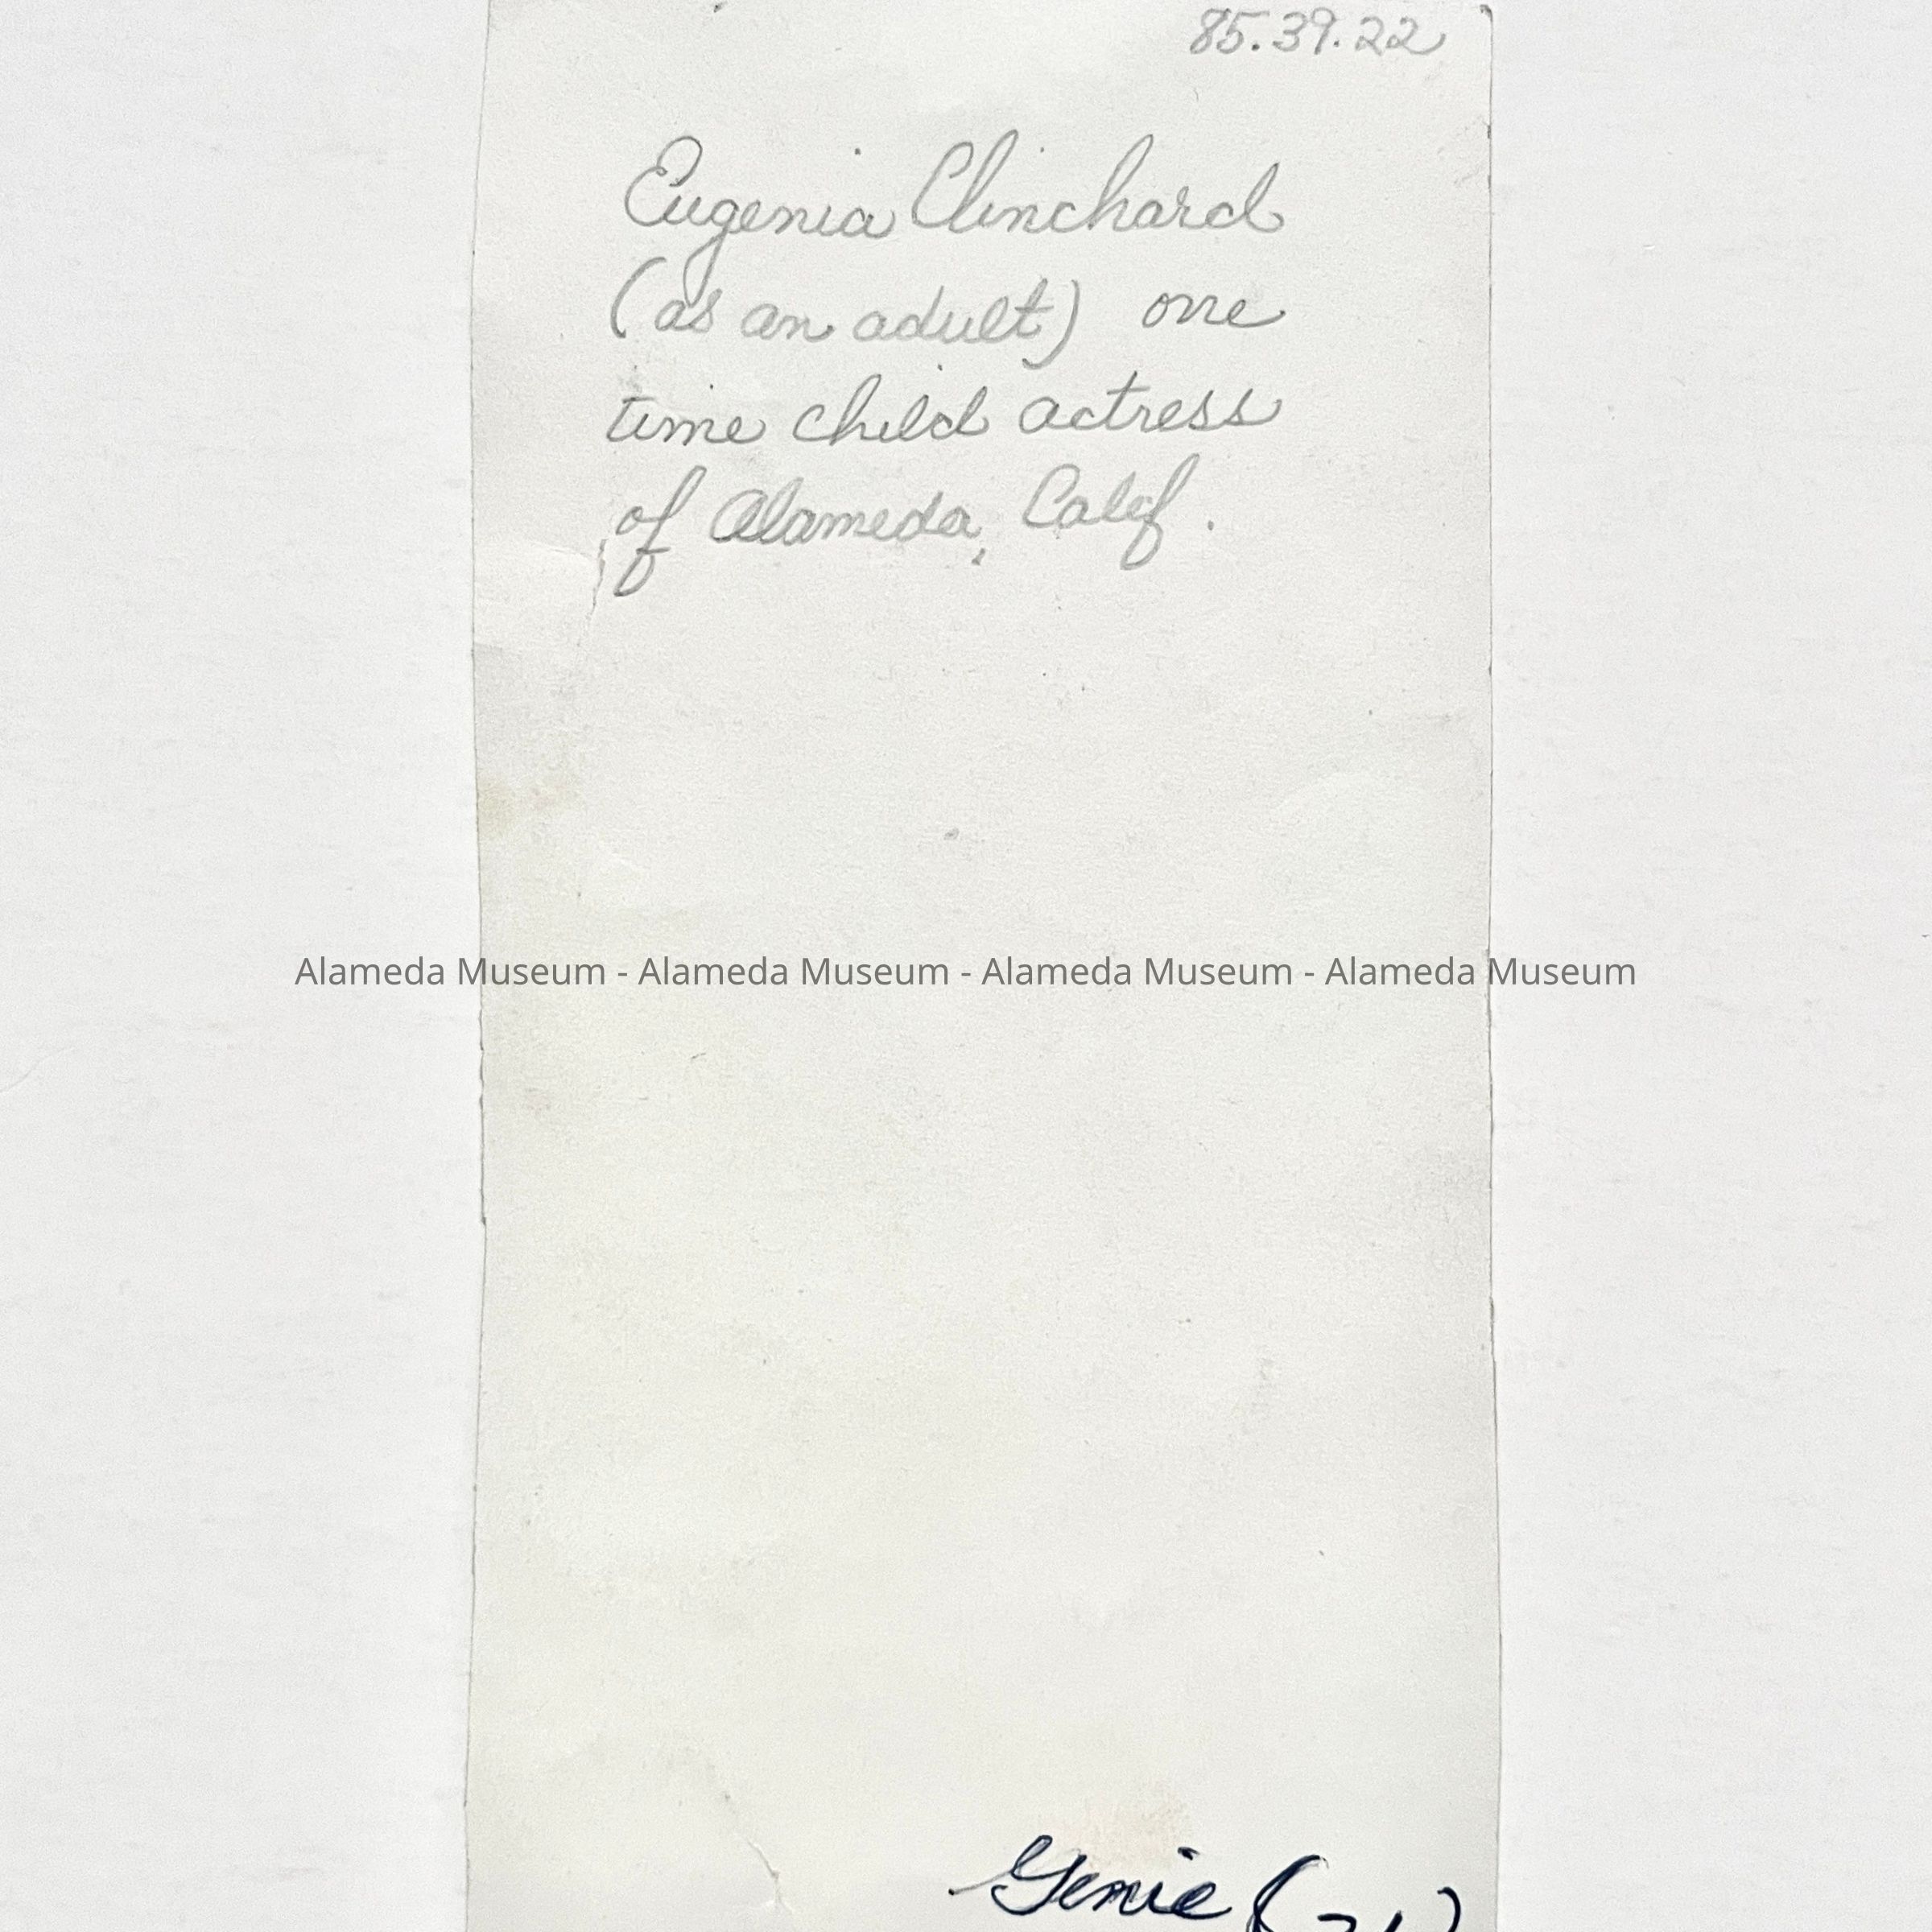 85.39.22
Eugenia Clinchard
(as an adult) one
time child actress
of Alameda, Calif.
Alameda Museum - Alameda Museum - Alameda Museum - Alameda Museum
Genie (